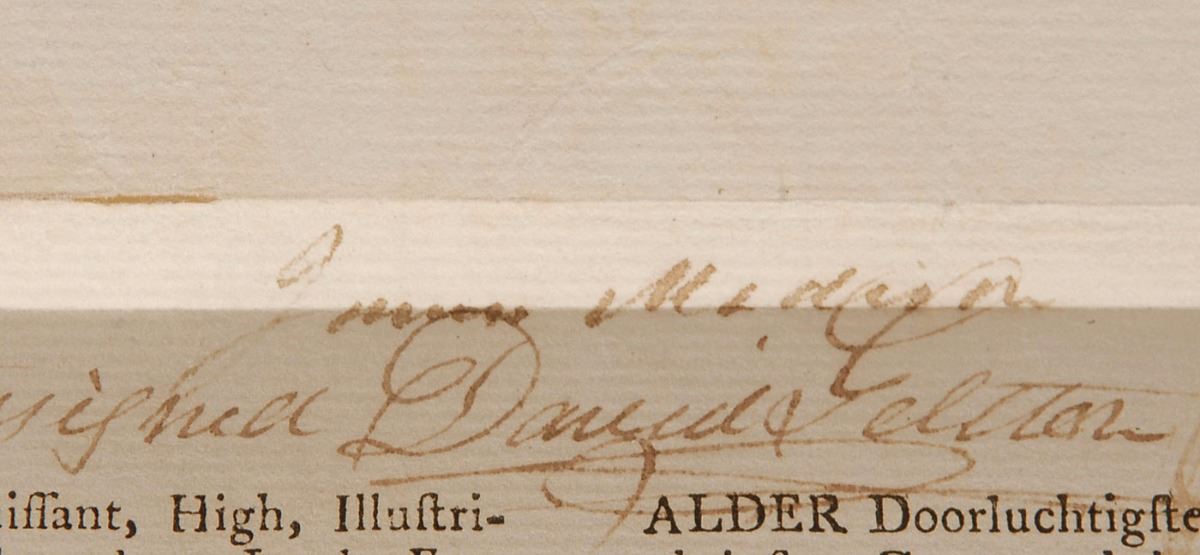 James Madison
signed David Geltton
iſſant, High, Illuſtri-
ALDER Doorluchtigſte